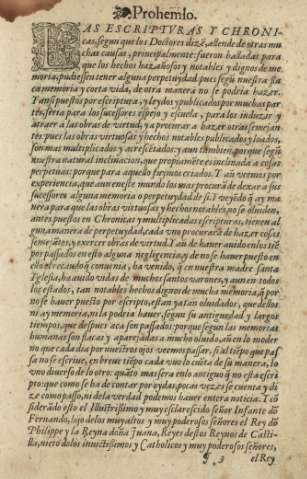 Prohemio.
LAS ESCRIPTVRAS Y CHRONI-
cas, segun que los Doctores dizẽ, allende de otras mu
chas causas, principalmente: fueron halladas para
que los hechos hazañosos y notables y dignos de me
moria, pudiessen tener alguna perpetuydad, pues segũ nuestra fla
ca memoria y corta vida, de otra manera no se podria hazer.
Y ansi puestos por escriptura, y leydos y publicados por muchas par
tes, seria para los successores espejo y escuela, para los induzir y
atraer a las obras de virtud, y a procurar a hazer otras semejan
tes: pues las obras virtuosas y hechos notables publicados y loados,
son mas multiplicados y acrescẽtados: y aun tambien, porque segũ
nuestra natural inclinacion, que propiamẽte es inclinada a cosas
perpetuas: porque para aquello fuymos criados. Y aũ vemos por
experiencia, que aun en este mundo los mas procurã de dexar a sus
successores alguna memoria o perpetuydad de si. Y veyẽdo q̃ ay ma
nera para que las obras virtuosas y hechos notables, no se oluiden,
antes puestos en Chronicas y multiplicadas escripturas, tienen al
guna manera de perpetuydad, cada vno procura de hazer cosas
semejãtes, y exercer obras de virtud. Y an de hauer auido en los tiẽ
pos passados en esto alguna negligencia, y de no se hauer puesto en
ello el recaudo q̃ conuenia, ha venido, q̃ en nuestra madre santa
Iglesia, ha auido vidas de muchos santos varones, y aun en todos
los estados, tan notables hechos dignos de mucha memoria, q̃ por
no se hauer puesto por escripto, estan ya tan oluidados, que dellos
ni ay memoria, ni la podria hauer, segun su antiguedad y largos
tiempos, que despues aca son passados: porque segun las memorias
humanas son flacas y aparejadas a mucho oluido, aũ en lo moder
no que cada dia por nuestros ojos vemos passar, si al tiẽpo que pas
sa no se escriue, en breue tiẽpo cada vno lo cuẽta de su manera, lo
vno diuerso de lo otro: quãto mas sera en lo antiguo q̃ no esta escri
pto: que como se ha de contar por oydas, pocas vezes se cuenta y di
ze como passo, ni de la verdad podemos hauer entera noticia. Y cõ
siderãdo esto el Illustrissimo y muy esclarescido señor Infante dõ
Fernando, hijo de los muy altos y muy poderosos señores el Rey dõ
Philippe y la Reyna doña Juana, Reyes destos Reynos de Casti-
lla, nieto de los inuictissimos y Catholicos y muy poderosos señores,
¶ 3 el Rey